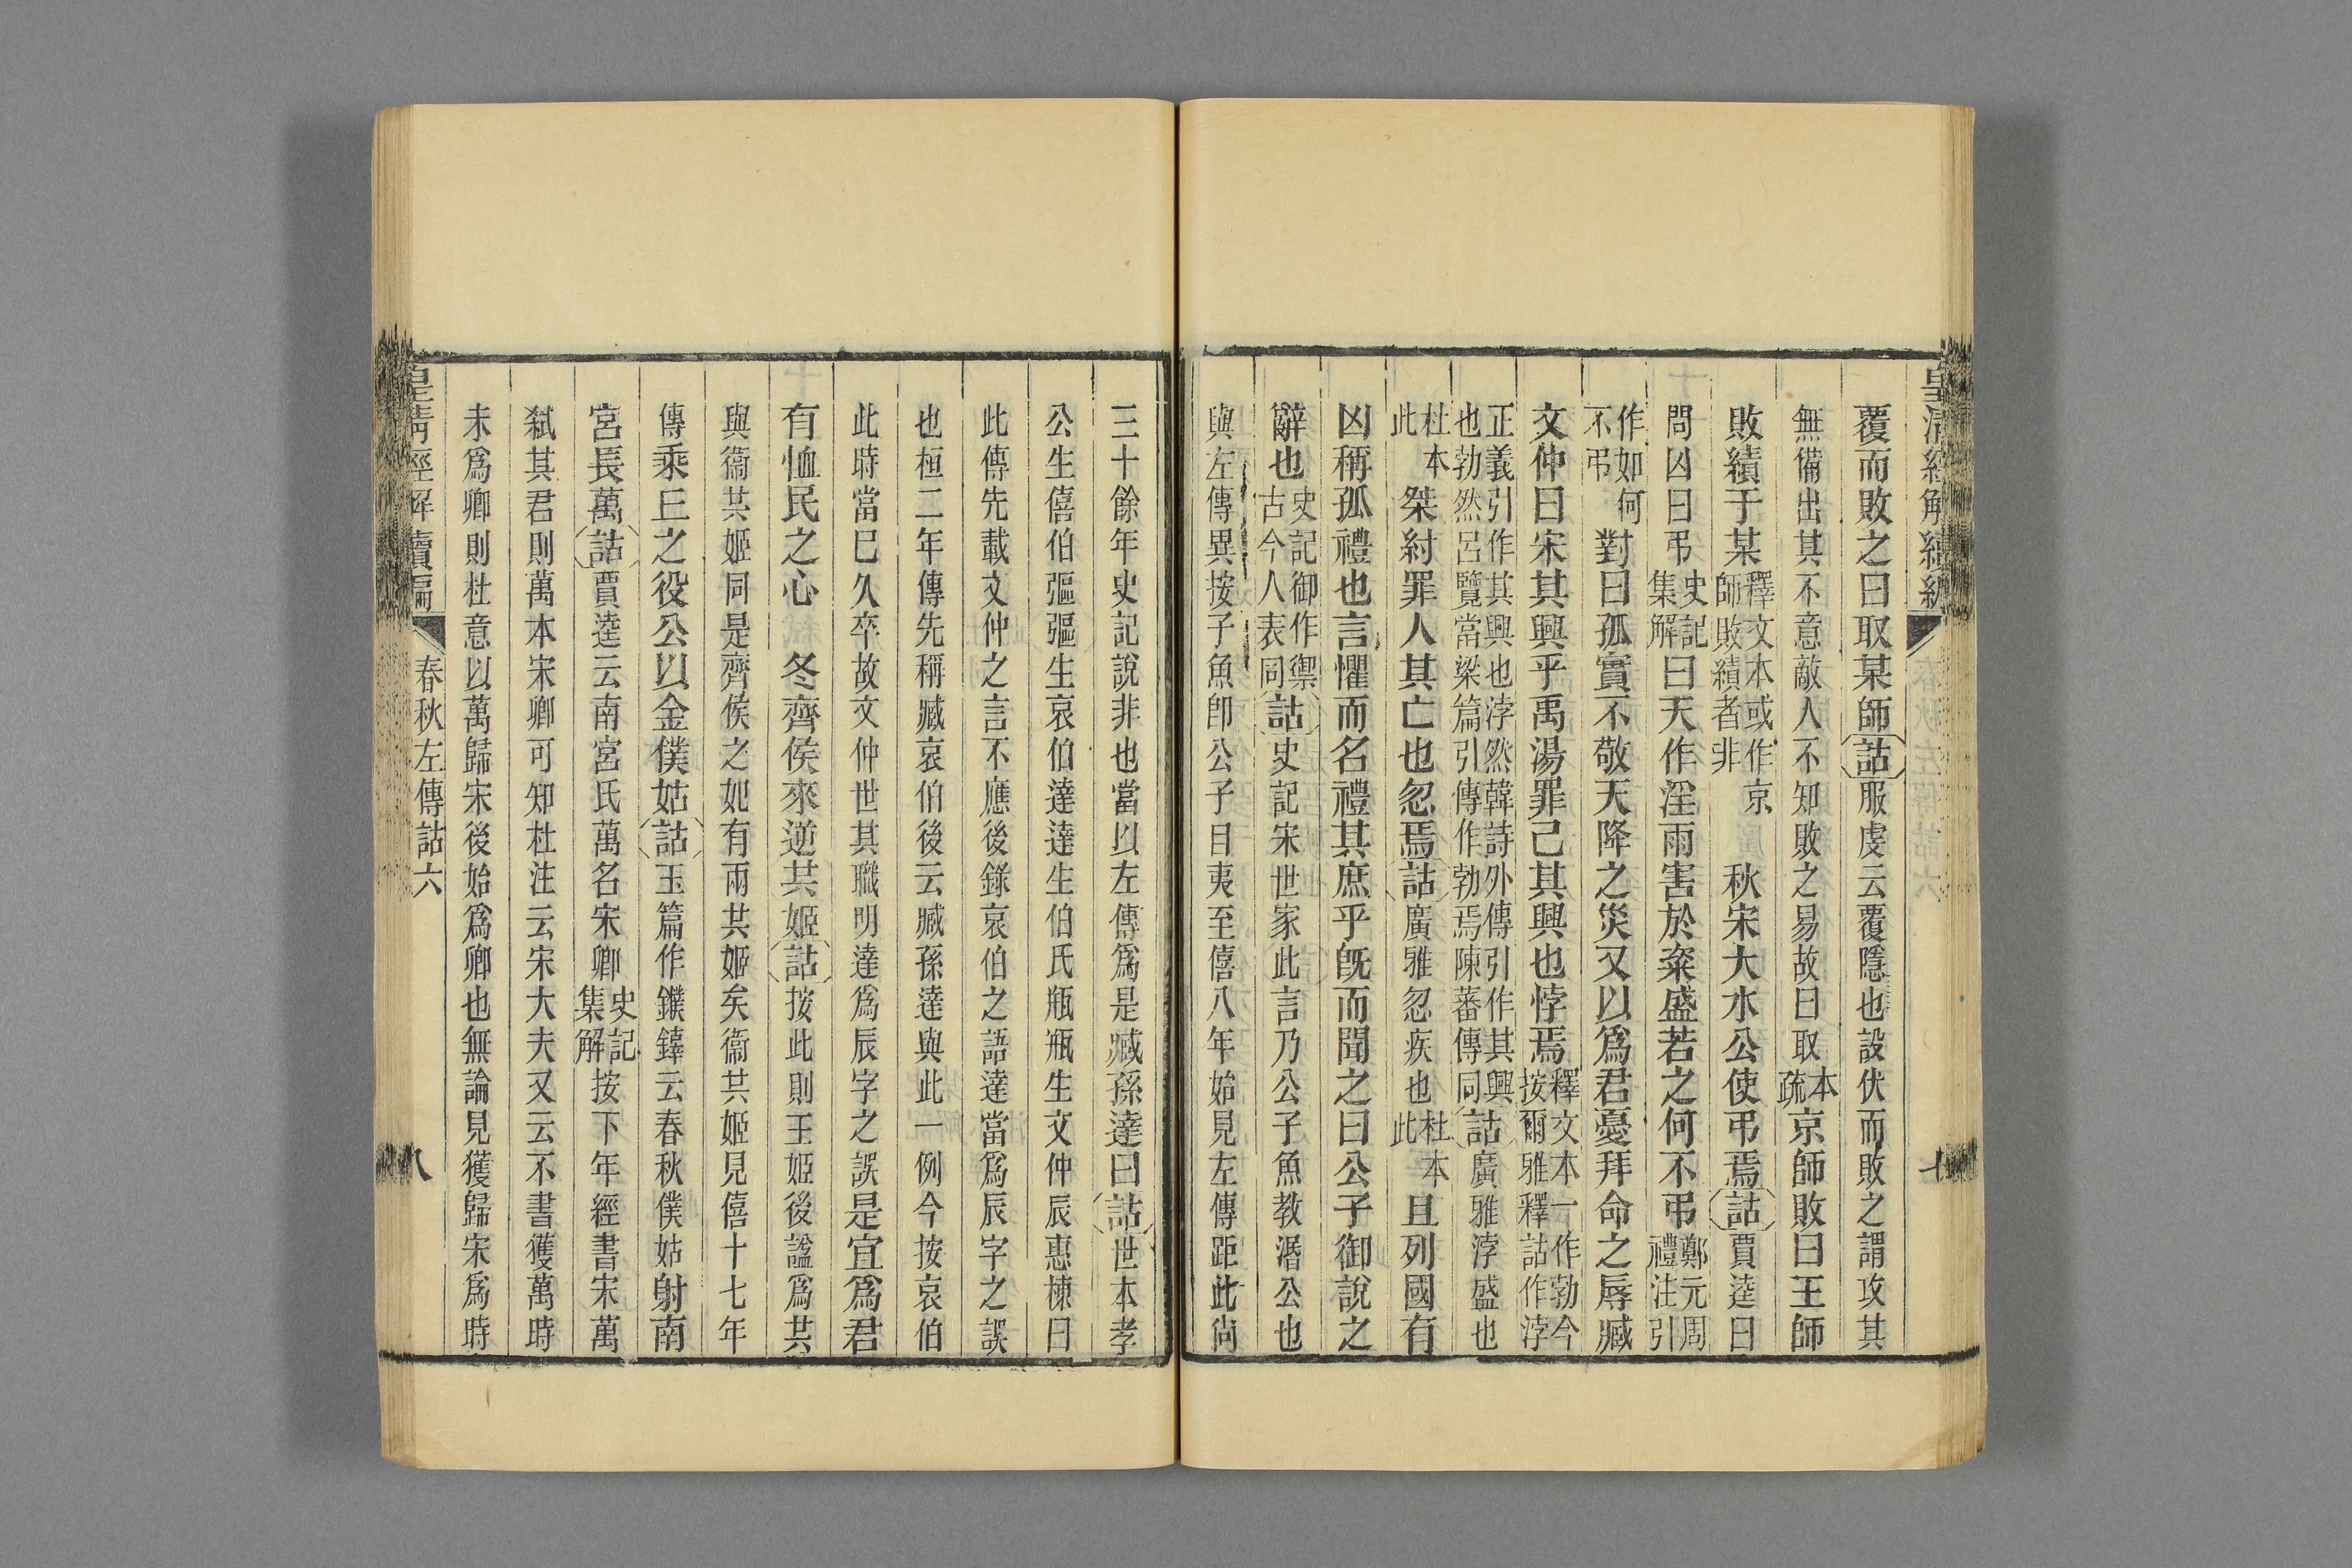 皇清經解續編
七
覆而敗之曰取某師詁服虔云覆隱也設伏而敗之謂攻其
無備出其不意敵人不知敗之易故曰取本疏京師敗曰王師
敗績于某釋文本或作京師敗績者非秋宋大水公使弔焉詁賈逵曰
問凶曰弔史記集解曰天作淫雨害於粢盛若之何不弔鄭元周禮注引
作如何不弔對曰孤實不敬天降之災又以爲君憂拜命之辱臧
文仲曰宋其興乎禹湯罪己其興也悖焉釋文本一作勃今按爾雅釋詁作浡
正義引作其興也浡然韓詩外傳引作其興也勃然呂覽當梁篇引傳作勃焉陳蕃傳同詁廣雅浡盛也
杜本此桀紂罪人其亡也忽焉詁廣雅忽疾也杜本此且列國有
凶稱孤禮也言懼而名禮其庶乎旣而聞之曰公子御說之
辭也史記御作禦古今人表同詁史記宋世家此言乃公子魚教湣公也
與左傳異按子魚卽公子目夷至僖八年始見左傳距此尙
三十餘年史記說非也當以左傳爲是臧孫達曰詁世本孝
公生僖伯彄彄生哀伯達達生伯氏瓶瓶生文仲辰惠棟曰
此傳先載文仲之言不應後錄哀伯之語達當爲辰字之誤
也桓二年傳先稱臧哀伯後云臧孫達與此一例今按哀伯
此時當已久卒故文仲世其職明達爲辰字之誤是宜爲君
有恤民之心 冬齊侯來逆共姬詁按此則王姬後諡爲共
與衞共姬同是齊侯之妃有兩共姬矣衞共姬見僖十七年
傳乘丘之役公以金僕姑詁玉篇作鏷鏲云春秋僕姑射南
宮長萬詁賈逵云南宮氏萬名宋卿史記集解按下年經書宋萬
弑其君則萬本宋卿可知杜注云宋大夫又云不書獲萬時
未爲卿則杜意以萬歸宋後始爲卿也無論見獲歸宋爲時
皇清經解續編
春秋左傳詁六
八